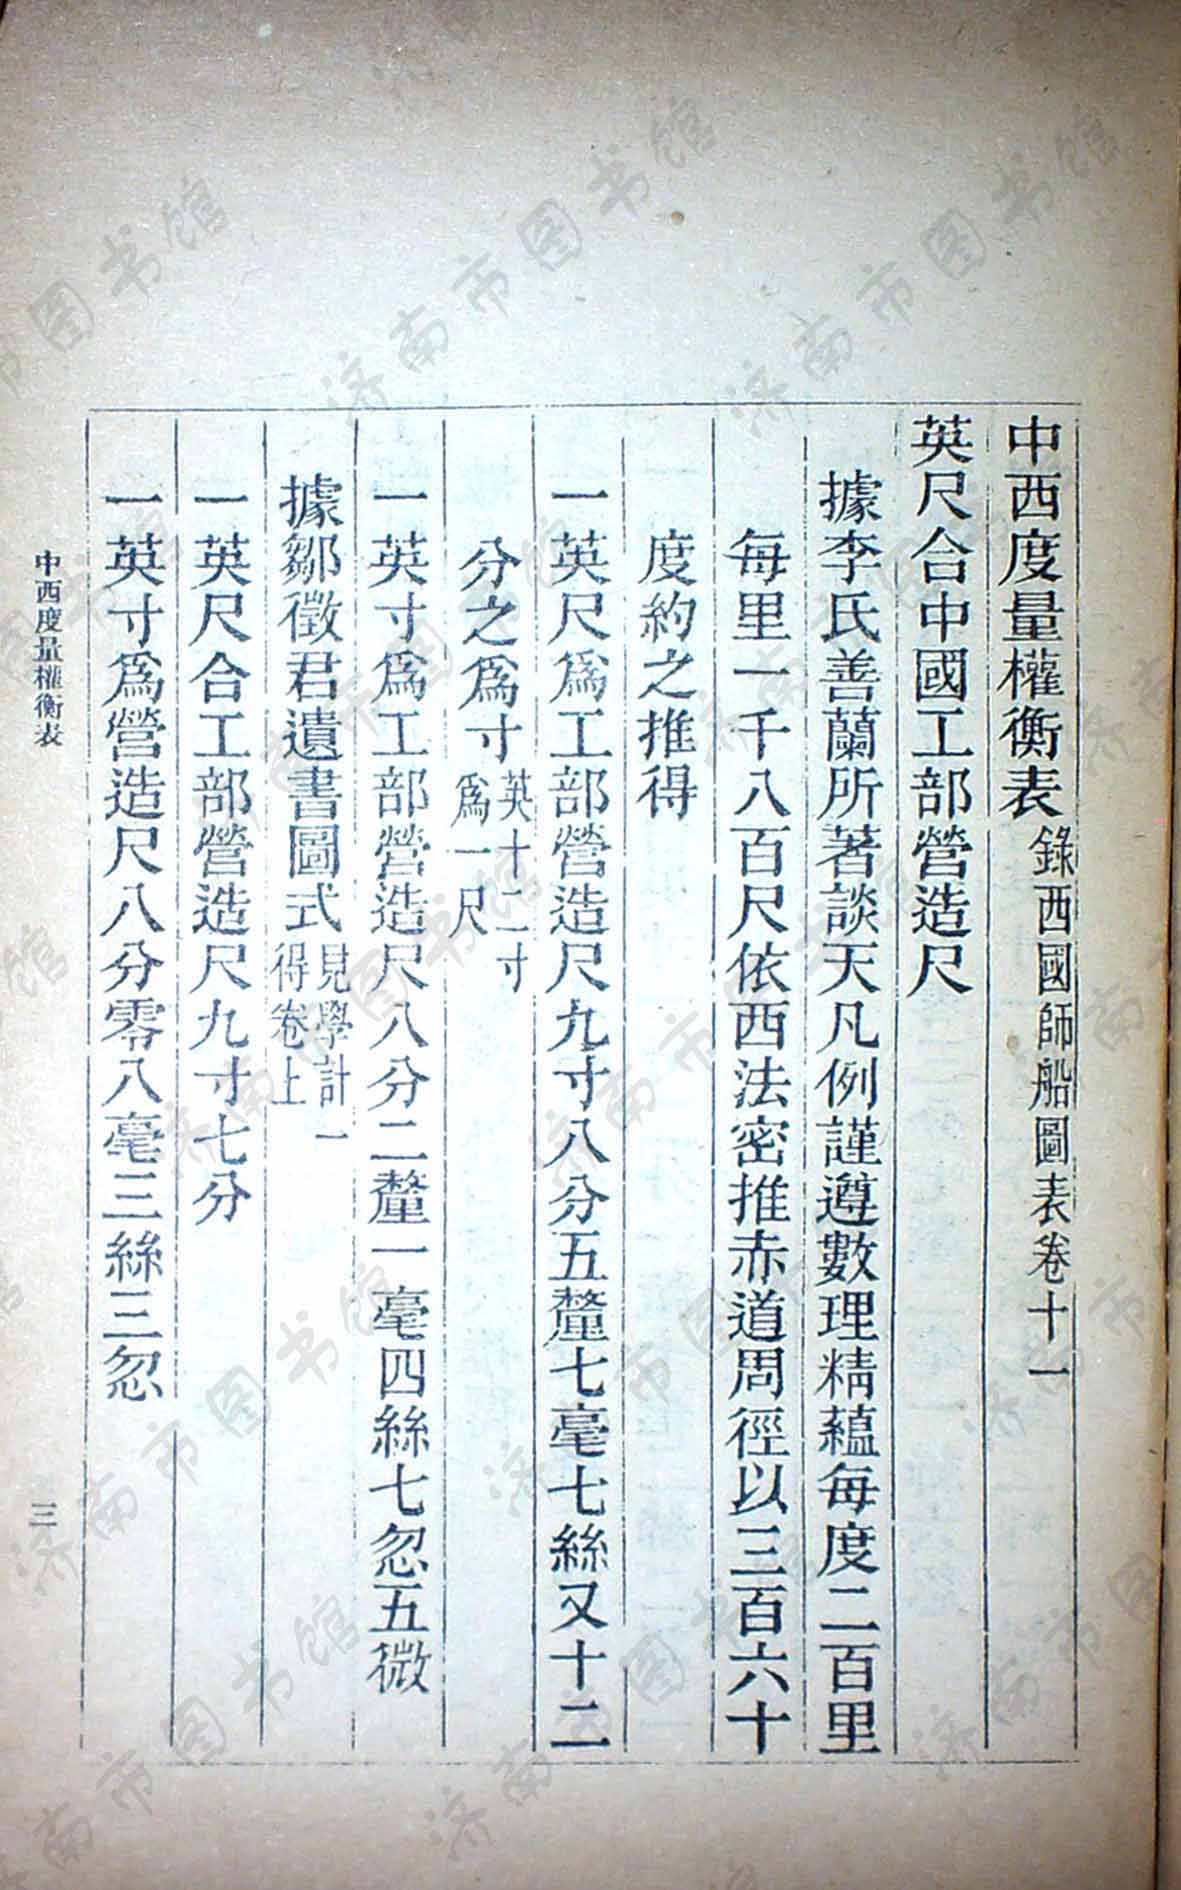 中西度量權衡表錄西國師船圖表卷十一
英尺合中國工部營造尺
據李氏善蘭所著談天凡例謹遵數理精蘊每度二百里
每里一千八百尺依西法密推赤道周徑以三百六十
度約之推得
一英尺為工部營造尺九寸八分五釐七毫七絲又十二
分之為寸英十二寸
為一尺
一英寸為工部營造尺八分二釐一毫四絲七忽五微
據鄒徵君遺書圖式見學計一
得卷上
一英尺合工部營造尺九寸七分
一英寸為營造尺八分零八毫三絲三忽
中西度量權衡表
三
济南市图书馆